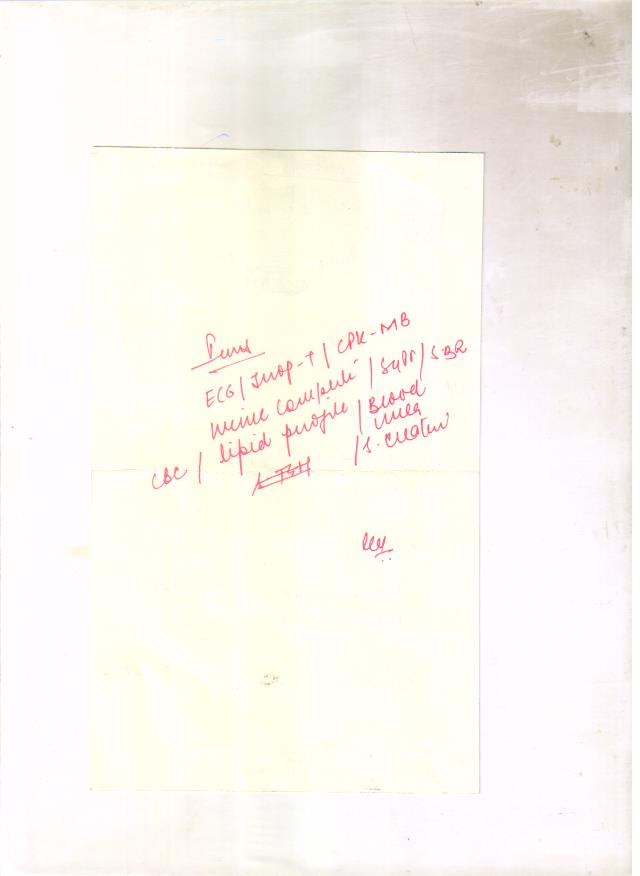 ECG / Trop-T / CPK-MB
urine complete / SGPT / S.BR
CBC / lipid profile / Blood urea
/ S. Creatin